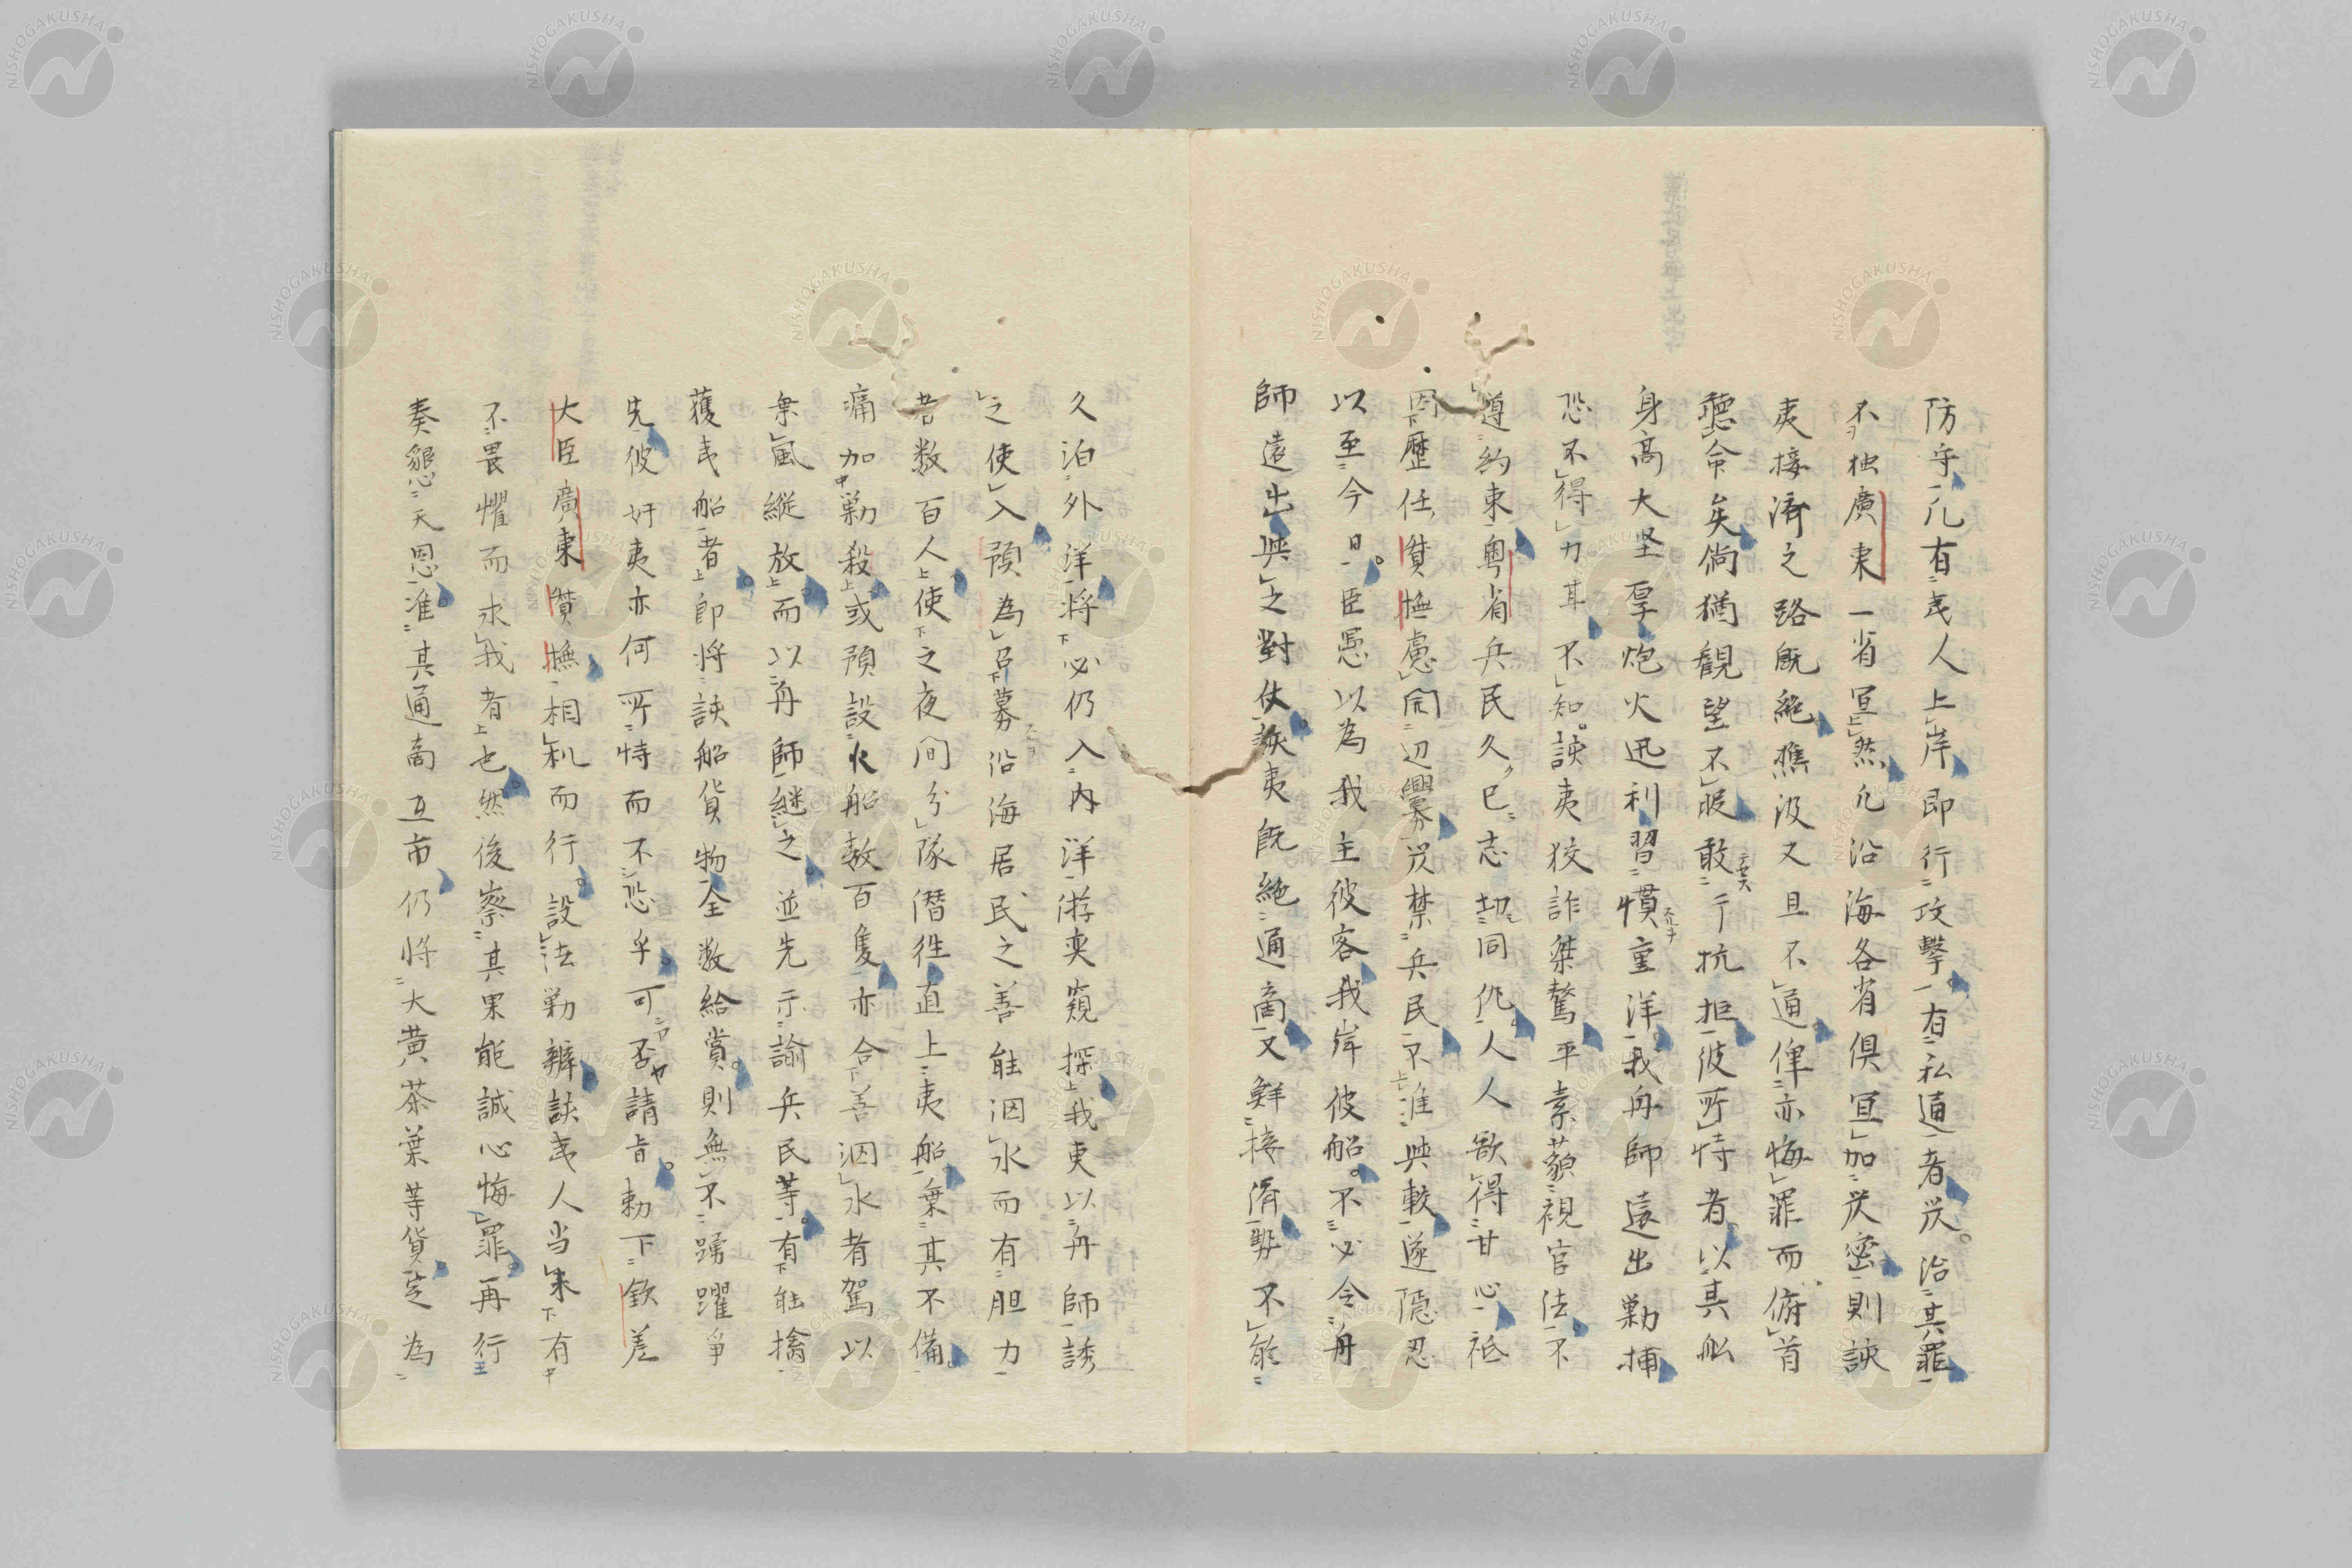 防守凡有夷人上岸即行攻撃有私通者災治其罪
不独廣東一省冝然凡沿海各省倶冝加災密則該
夷接濟之路既絶樵汲又且不通俾亦悔罪而俯首
聴命矣倘猶観望不服敢于抗拒彼所恃者以其船
身高大坚厚炮火迅利習慣重洋我舟師遠出勦捕
恐不得力耳不知該夷狡詐桀驁平素藐視官法不
遵約束粤省兵民久已志切同仇人人欲得甘心祗
因歴任督撫慮開辺釁災禁兵民不准與較遂隠忍
以至今日臣愚以為我主彼客我岸彼船不必令舟
師遠出與之對仗該夷既絶通商又鮮接濟勢不能
久泊外洋将必仍入内洋游奕窺探我更以舟師誘
之使入預為召募沿海居民之善能泅水而有胆力
者数百人使之夜間分隊潜徃直上夷船棄其不備
痛加勦殺或預設火船数百隻亦合善泅水者駕以
乗風縦放而以舟師継之並先示諭兵民等有能擒
獲夷船者即将該船貨物全数給賞則無不踴躍争
先彼奸夷亦何所恃而不恐乎可否請旨勅下欽差
大臣廣東督撫相机而行設法勦辦該夷人当未有
不畏懼而求我者也然後察其果能誠心悔罪再行
奏懇天恩准其通商互市仍将大黄茶葉等貨定為
NISHOGAKUSHA